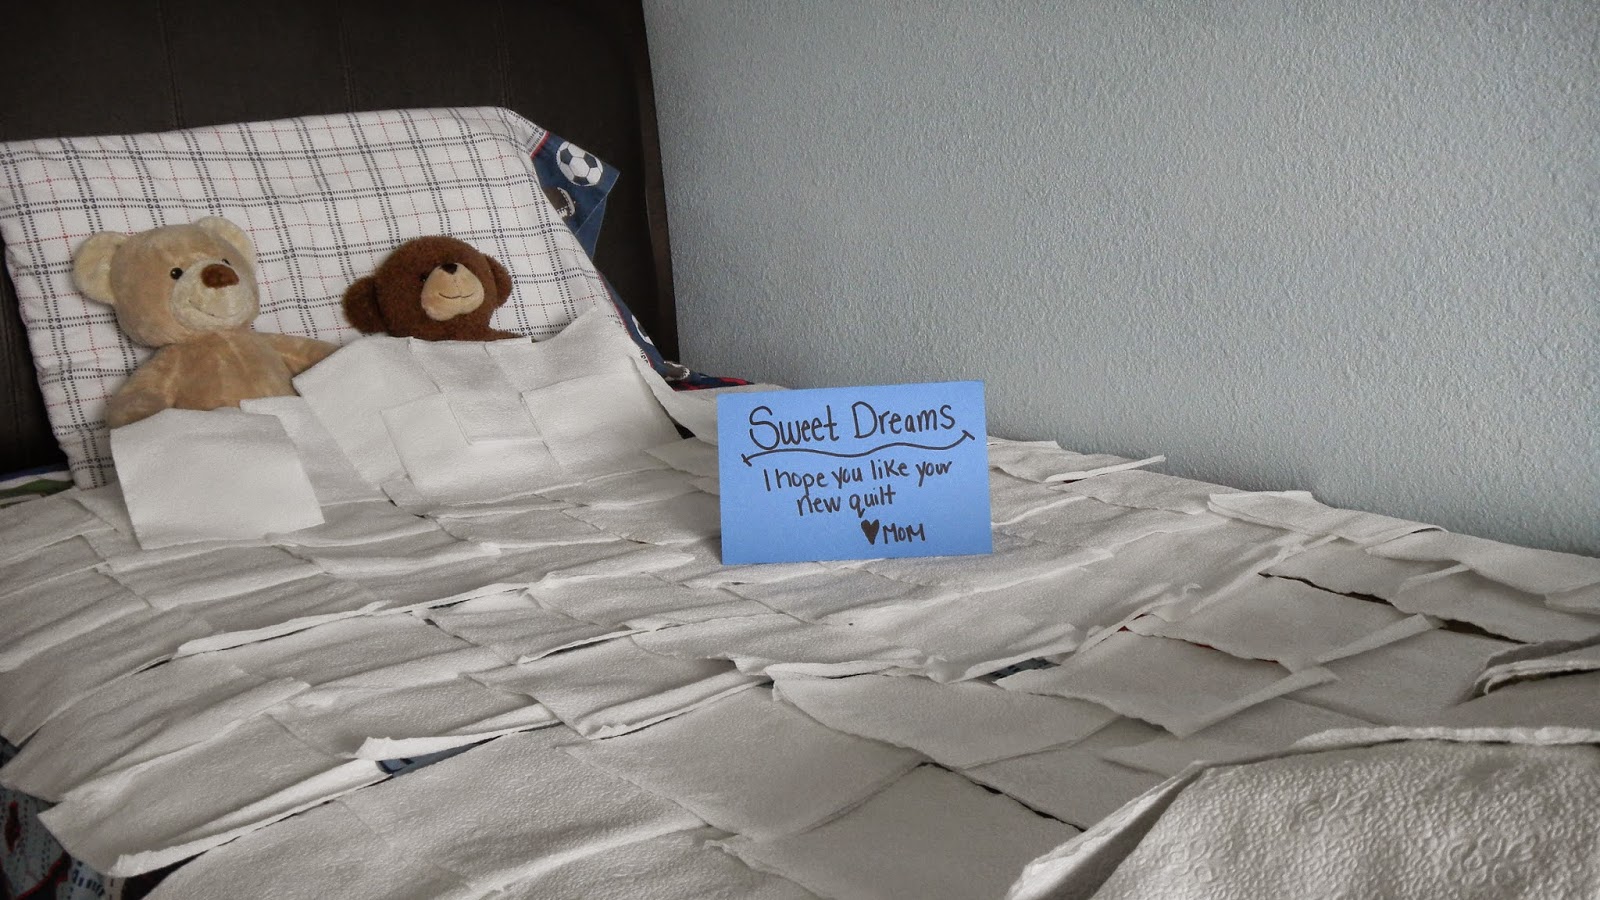 Sweet Dreams
I hope you like your
new quilt
♥ Mom